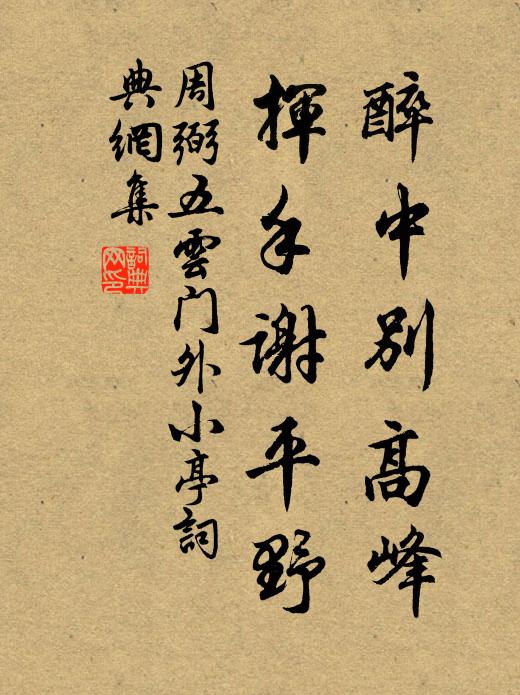 醉中別高峰
揮手謝平野
周弼五雲門外小亭詞
典網集
詞典
网印